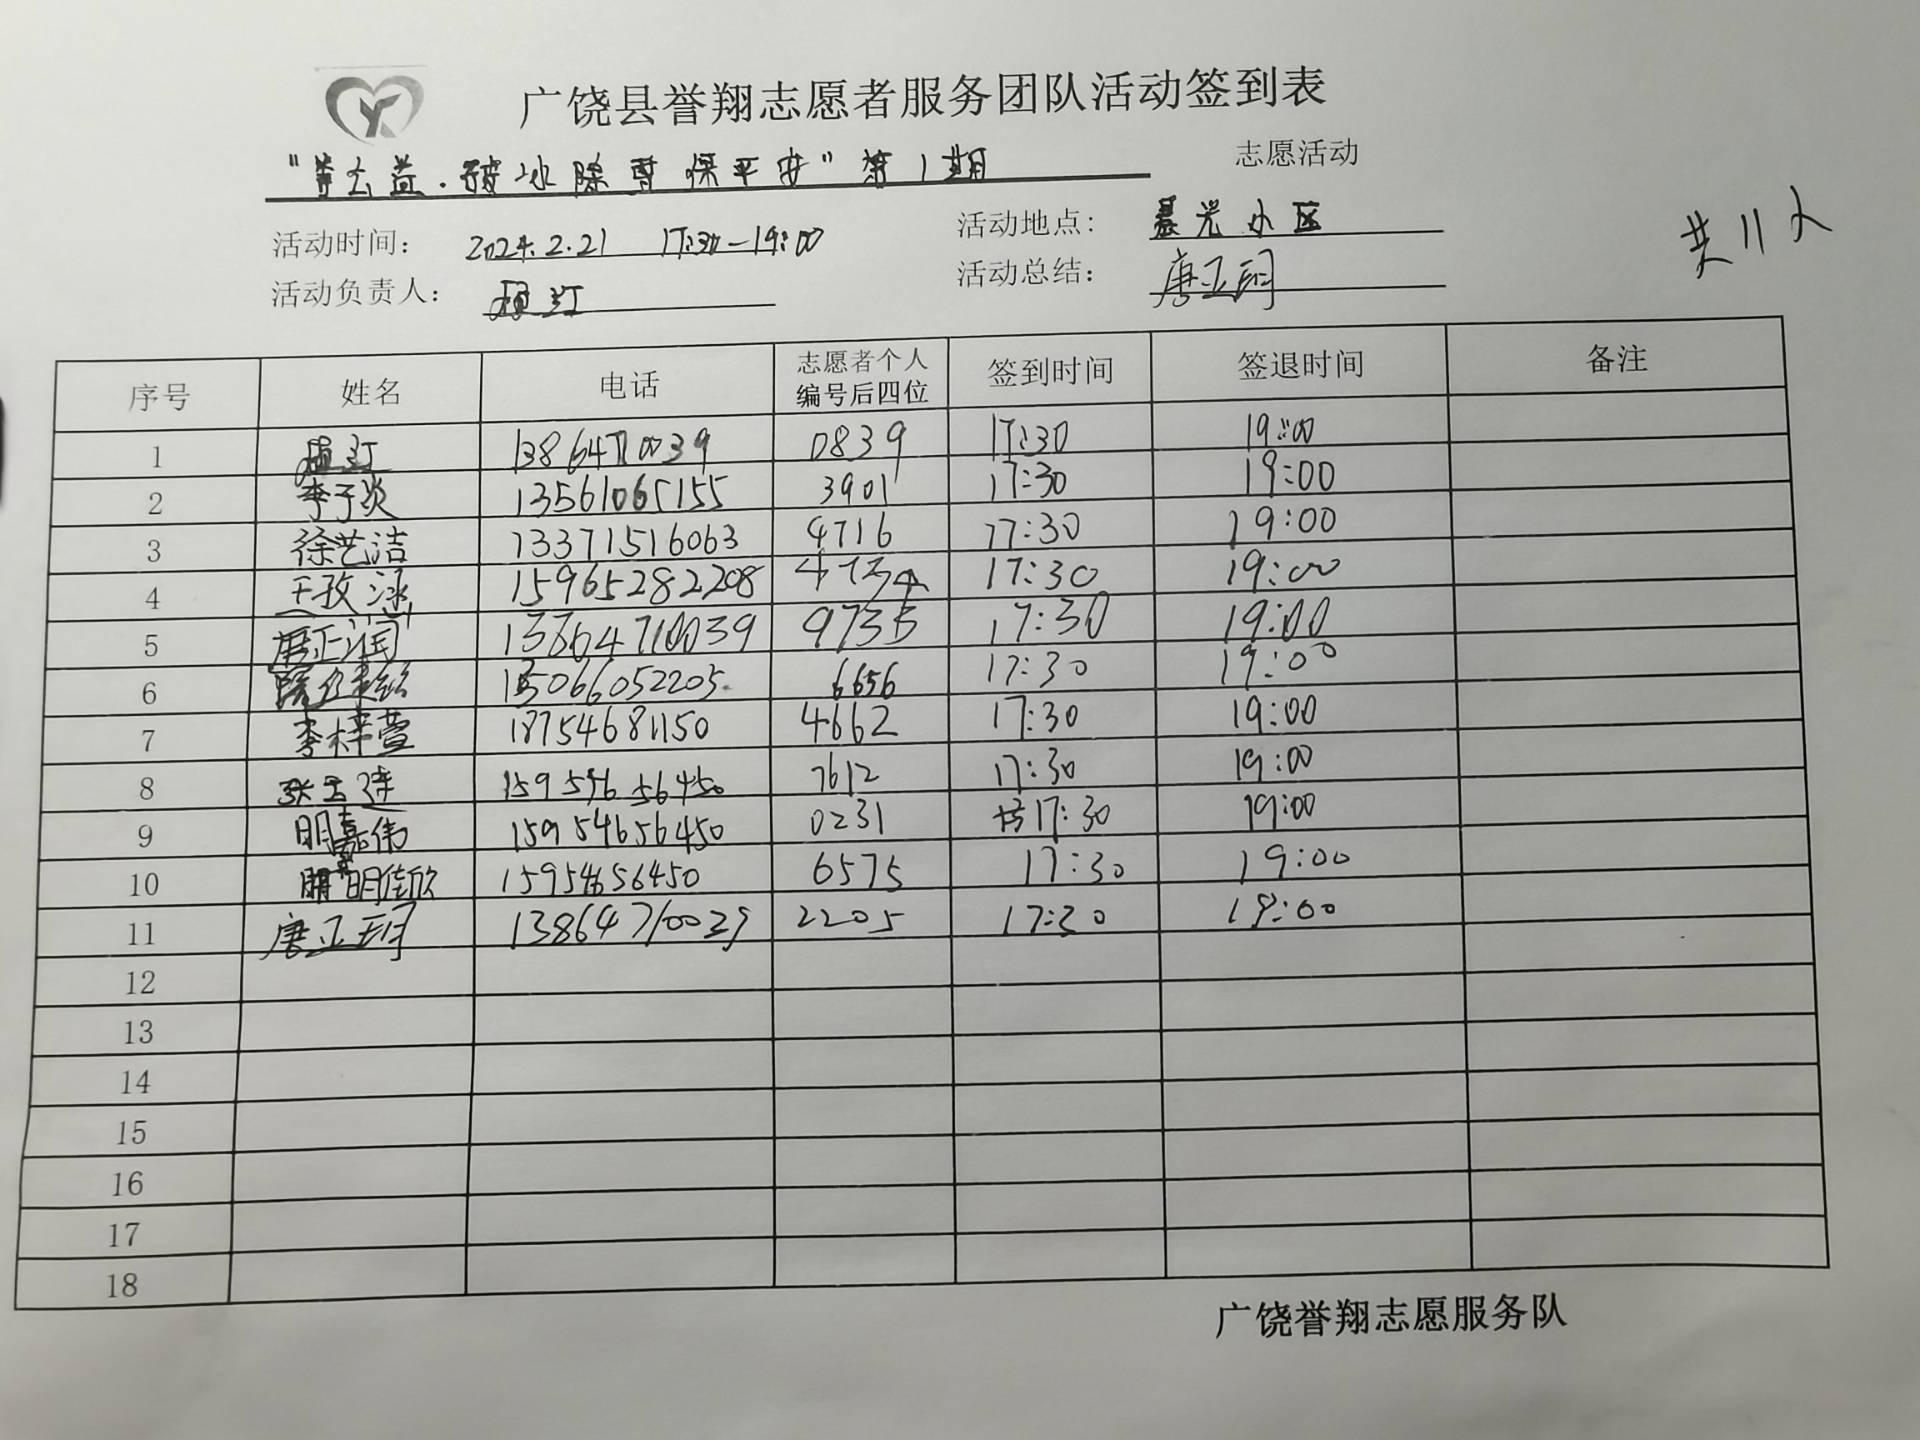 广饶县誉翔志愿者服务团队活动签到表
公益·破冰除雪保平安"第1期 志愿活动
活动时间: 2024.2.21 17:30-19:00 活动地点: 晨光小区
共11人
活动负责人: 活动总结: 唐正珂
序号 姓名 电话 志愿者个人编号后四位 签到时间 签退时间 备注
1 13864710039 0839 17:30 19:00
2 李子炎 13561065155 3901 17:30 19:00
3 徐艺洁 13371516063 4716 17:30 19:00
4 王孜 15965282208 17:30 19:00
5 唐正润 13864710039 9735 17:30 19:00
6 15066052205 6656 17:30 19:00
7 李梓萱 18754681150 4662 17:30 19:00
8 张玉莲 15954656450 7612 17:30 19:00
9 明嘉伟 15954656450 0231 17:30 19:00
10 明佳欣 15954656450 6575 17:30 19:00
11 唐正珂 13864710039 2205 17:30 19:00
12
13
14
15
16
17
18
广饶誉翔志愿服务队